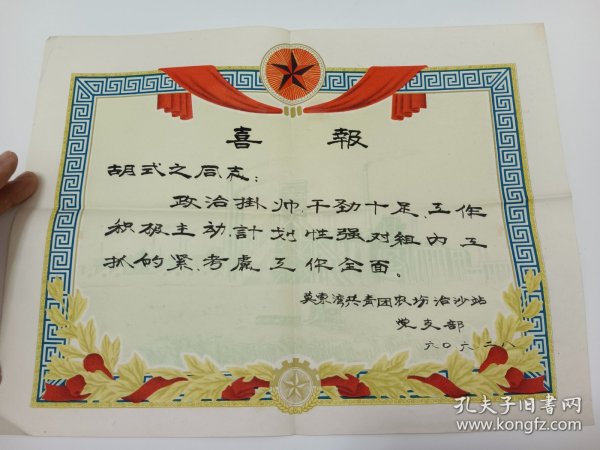 喜報
胡式之同志：
政治掛帅，干劲十足，工作
积极主动，計划性强对組内工
抓的紧，考虑工作全面。
莫索湾共青团农场治沙站
党支部
六〇六二八
孔夫子旧书网
www.kongfz.com